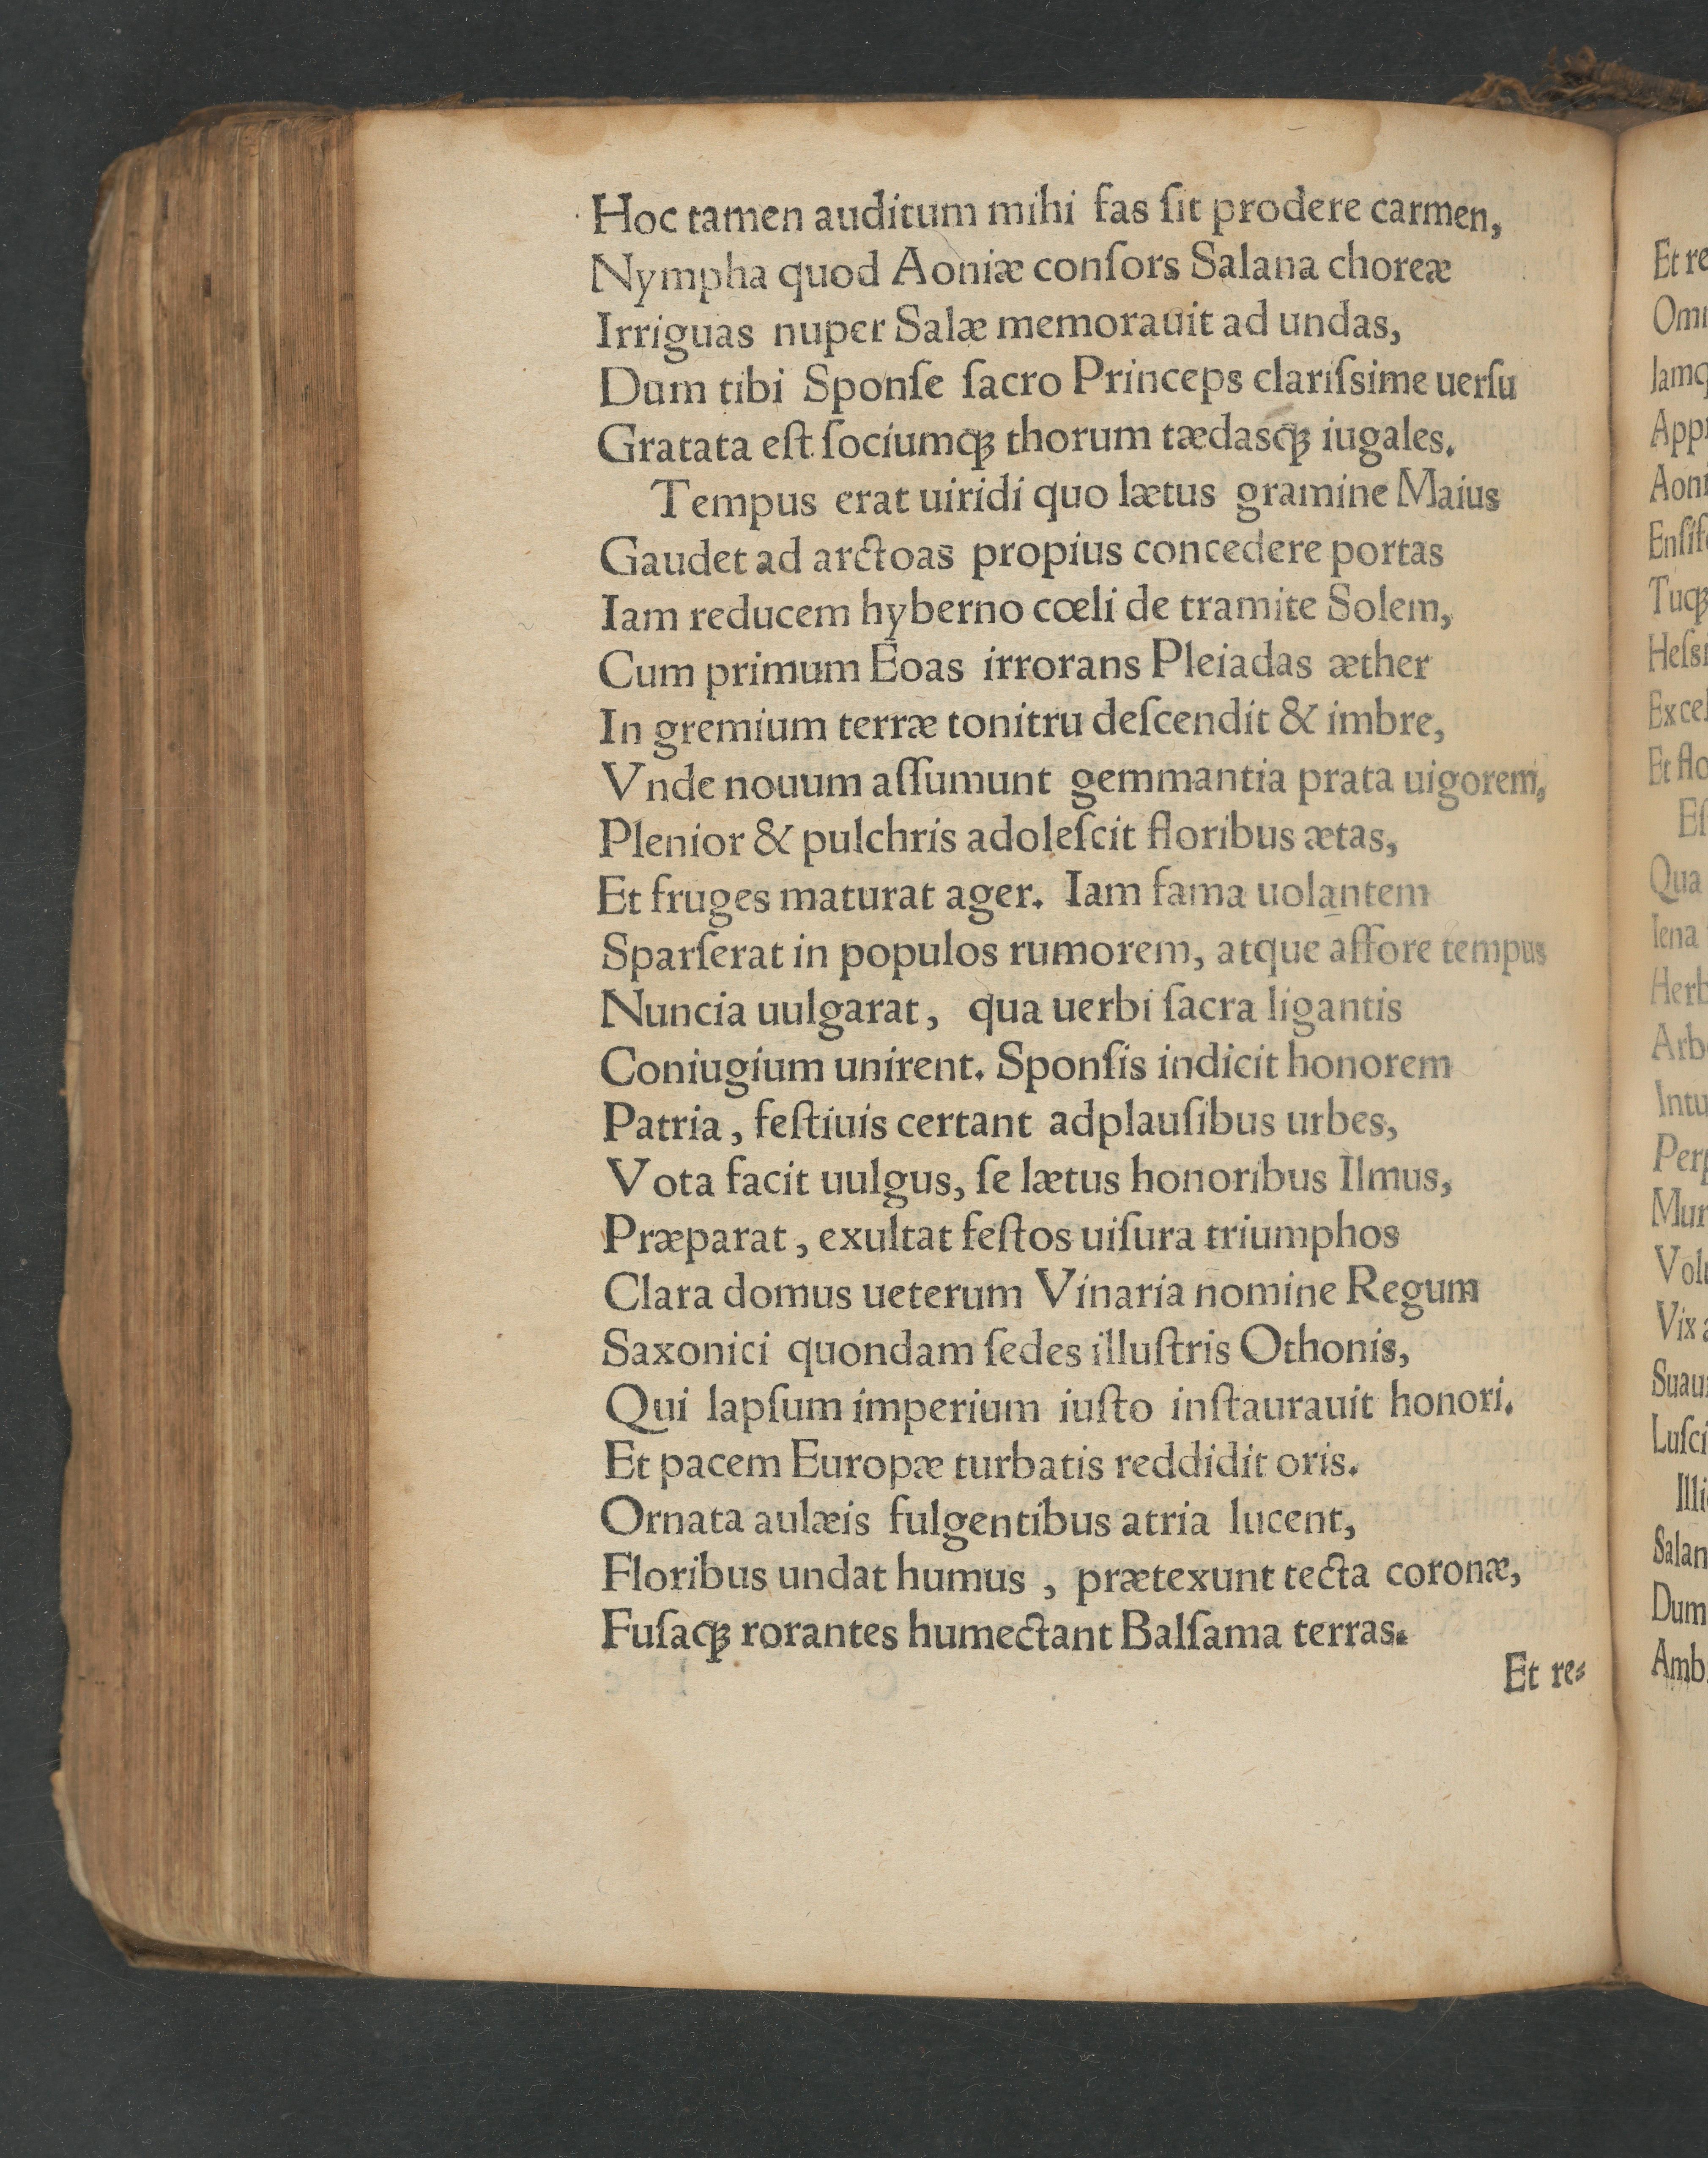 Hoc tamen auditum mihi fas ſit prodere carmen,
Nympha quod Aoniæ conſors Salana choreæ
Irriguas nuper Salæ memorauit ad undas,
Dum tibi Sponſe ſacro Princeps clariſsime uerſu
Gratata eſt ſociumqꝫ thorum tædasqꝫ iugales.
Tempus erat uiridi quo lætus gramine Maius
Gaudet ad arctoas propius concedere portas
Iam reducem hyberno cœli de tramite Solem,
Cum primum Eoas irrorans Pleiadas æther
In gremium terræ tonitru deſcendit & imbre,
Vnde nouum aſſumunt gemmantia prata uigorem,
Plenior & pulchris adoleſcit floribus ætas,
Et fruges maturat ager. Iam fama uolantem
Sparſerat in populos rumorem, atque affore tempus
Nuncia uulgarat, qua uerbi ſacra ligantis
Coniugium unirent. Sponſis indicit honorem
Patria, feſtiuis certant adplauſibus urbes,
Vota facit uulgus, ſe lætus honoribus Ilmus,
Præparat, exultat feſtos uiſura triumphos
Clara domus ueterum Vinaria nomine Regum
Saxonici quondam ſedes illuſtris Othonis,
Qui lapſum imperium iuſto inſtaurauit honori.
Et pacem Europæ turbatis reddidit oris.
Ornata aulæis fulgentibus atria lucent,
Floribus undat humus, prætexunt tecta coronæ,
Fuſaqꝫ rorantes humectant Balſama terras.
Et re⸗
Et re
Iamq
Aoni
Tuqꝫ
Excel
Et flo
Qua
Iena
Herb
Arb
Intu
Perp
Mur
Vix
Luſci
Illi
Salan
Dum
Amb